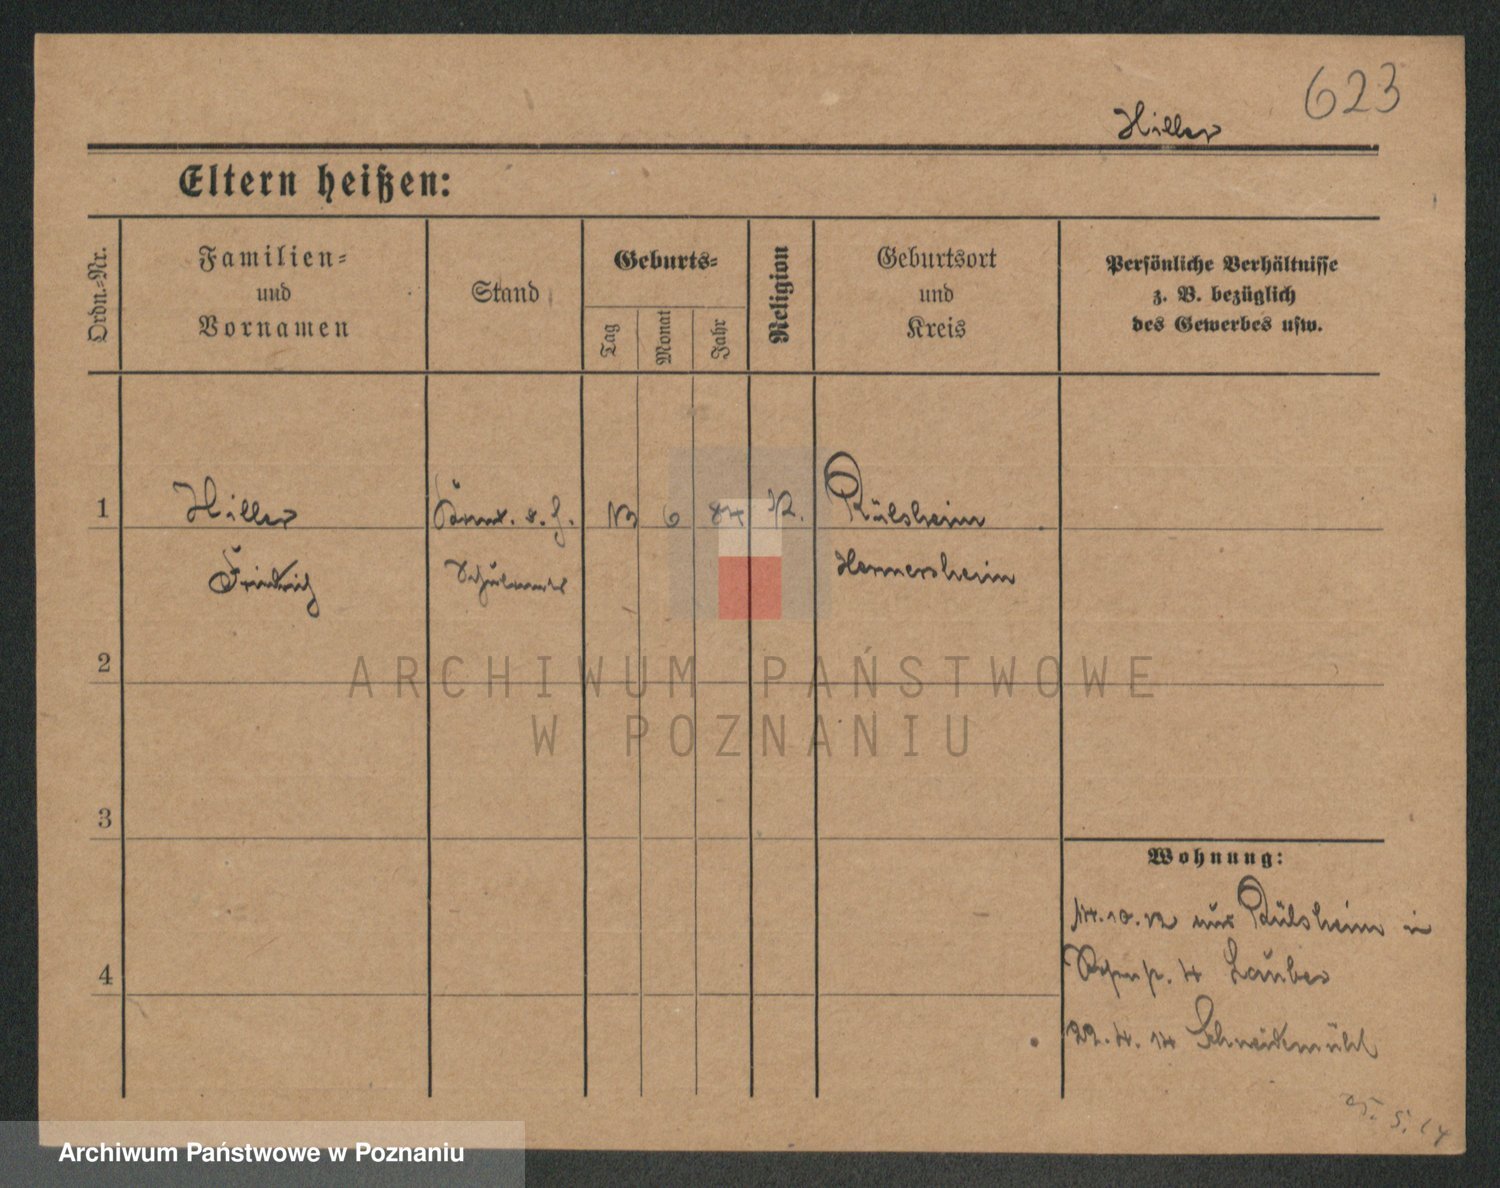 623
Hiller
Eltern heißen:
Ordn.-Nr.
Familien-
und
Vornamen
Stand
Geburts-
Tag
Monat
Jahr
Religion
Geburtsort
und
Kreis
Persönliche Verhältnisse
z. B. bezüglich
des Gewerbes usw.
1
Hiller
13
6
84
K.
Rülsheim
Friedrich
Hermersheim
2
ARCHIWUM PAŃSTWOWE
W POZNANIU
3
Wohnung:
14.10.12 aus Rülsheim in
4
4 Lauber
22.4.14 Schneidemühl
5.14
Archiwum Państwowe w Poznaniu